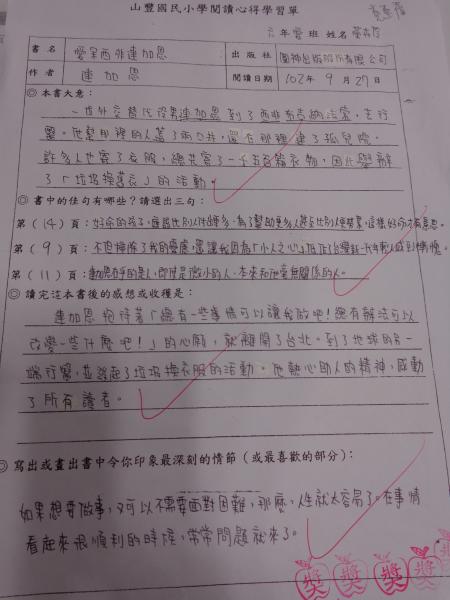 山豐國民小學閱讀心得學習單
六年愛班 姓名
書名 愛呆西非連加恩 出版社 圓神出版股份有限公司
作者 連加恩 閱讀日期 102年9月27日
◎本書大意:
一位外交替代役男連加恩到了西非布吉納法索,去行
醫。他幫那裡的人蓋了兩口井,還在那裡建了孤兒院。
許多人也寄了衣服,總共寄了一千五百箱衣物,因此舉辦
了「垃圾換舊衣」的活動。
◎書中的佳句有哪些?請選出三句:
第(14)頁:好命的孩子,應該比別人付出更多,為了幫助更多人甚至比別人更勞累,這樣好命才有意思。
第(9)頁:不但掃除了我的憂慮,還讓我因為「小人之心」
第(11)頁:動局在乎的是人,即使是微小的人,本來和他毫無關係的人。
◎讀完這本書後的感想或收穫是:
連加恩抱持著「總有一些事情可以讓我做吧!總有辦法可以
改變一些什麼吧!」的心願,就離開了台北。到了地球的另一
端行醫,並發起了垃圾換衣服的活動。他熱心助人的精神,感動
了所有讀者。
◎寫出或畫出書中令你印象最深刻的情節(或最喜歡的部分):
如果想要做事,又可以不需要面對困難,那麼,人生就太容易了。在事情
看起來很順利的時候,常常問題就來了。
獎 獎 獎 獎